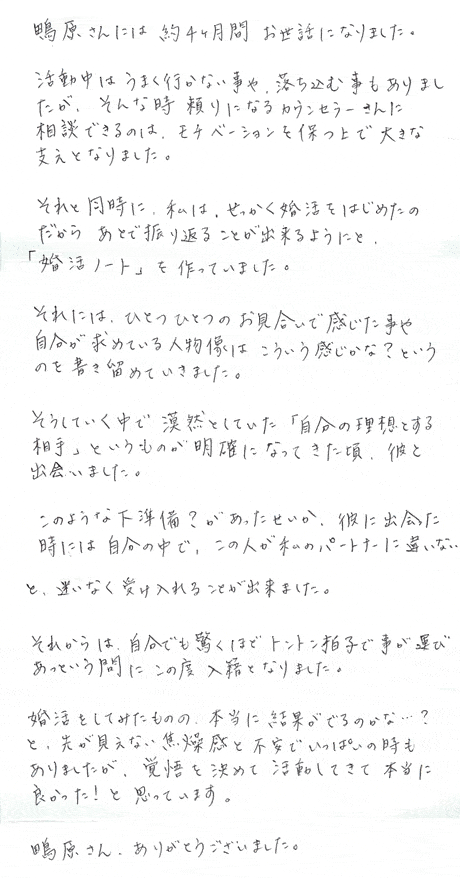 鴨原さんには 約4ヶ月間 お世話になりました。
活動中はうまく行かない事や、落ち込む事もありまし
たが、そんな時 頼りになるカウンセラーさんに
相談できるのは、モチベーションを保つ上で大きな
支えとなりました。
それと同時に、私は、せっかく婚活をはじめたの
だから あとで振り返ることが出来るようにと、
「婚活ノート」を作っていました。
それには、ひとつひとつのお見合いで感じた事や
自分が求めている人物像は こういう感じかな?という
のを書き留めていきました。
そうしていく中で 漠然としていた「自分の理想とする
相手」というものが明確になってきた頃、彼と
出会いました。
このような下準備?があったせいか、彼に出会った
時には自分の中で、この人が私のパートナーに違いない
と、迷いなく受け入れることが出来ました。
それからは、自分でも驚くほどトントン拍子で事が運び
あっという間に この度 入籍となりました。
婚活をしてみたものの、本当に結果がでるのかな…?
と、先が見えない焦燥感と不安でいっぱいの時も
ありましたが、覚悟を決めて活動してきて本当に
良かった!と思っています。
鴨原さん、ありがとうございました。